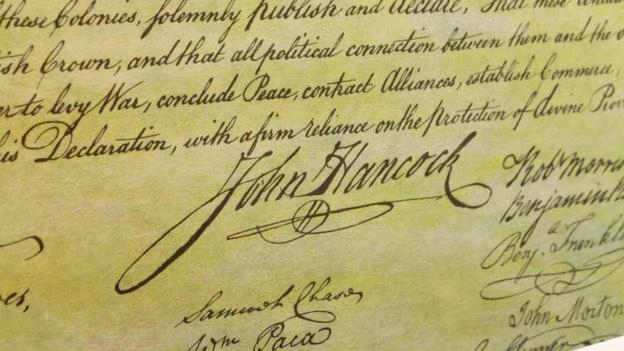 these Colonies, solemnly publish and declare, That these
ish Crown, and that all political connection between them and the
er to levy War, conclude Peace, contract Alliances, establish Commerce,
his Declaration, with a firm reliance on the protection of divine
John Hancock
Robt Morris
Benjamin
Benj. Franklin
Samuel Chase
Wm Paca
John Morton